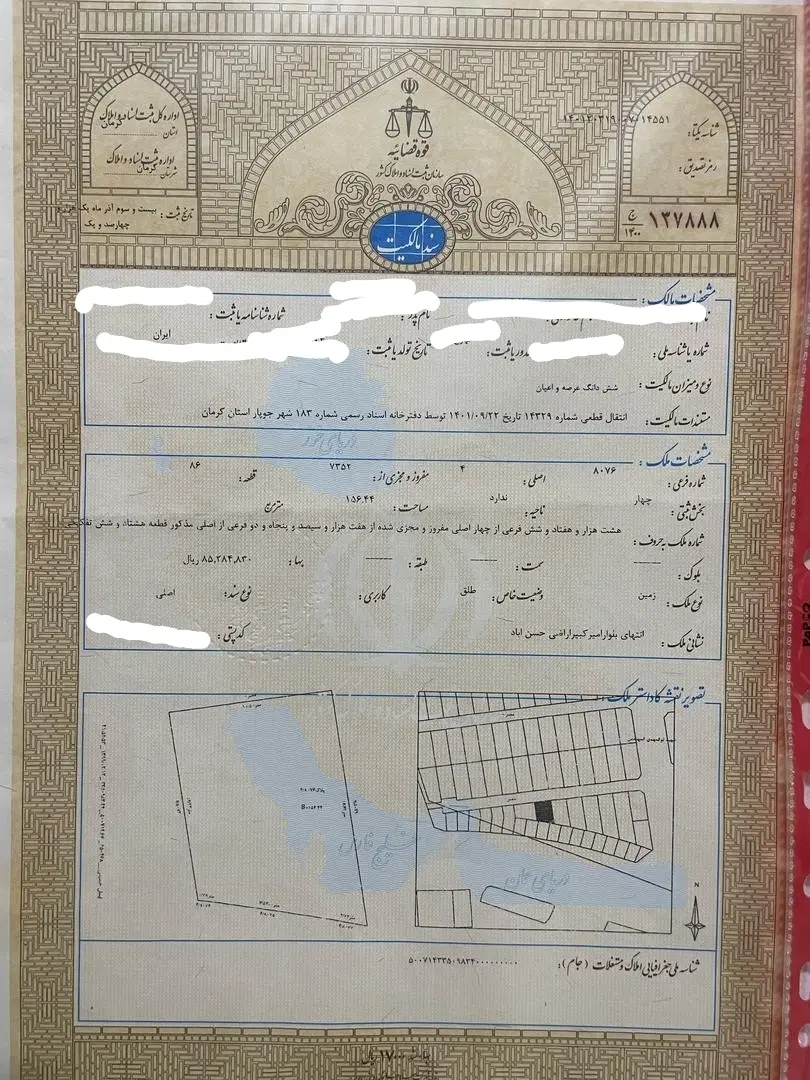 قوه قضائیه
سازمان ثبت اسناد و املاک کشور
سند مالکیت
اداره کل ثبت اسناد و املاک
استان کرمان
اداره ثبت اسناد و املاک
شهرستان کرمان
تاریخ ثبت : بیست و سوم آذر ماه یک هزار و
چهارصد و یک
شناسه یکتا:
رمز تصدیق :
۱۳۷۸۸۸ ج ۱۴۰۰
مشخصات مالک :
نام پدر : شماره شناسنامه یا ثبت :
شماره یا شناسه ملی : تاریخ تولد یا ثبت : ایران
نوع و میزان مالکیت : شش دانگ عرصه و اعیان
مستندات مالکیت : انتقال قطعی شماره ۱۴۳۲۹ تاریخ ۱۴۰۱/۰۹/۲۲ توسط دفترخانه اسناد رسمی شماره ۱۸۳ شهر جوپار استان کرمان
مشخصات ملک :
شماره فرعی : ۸۰۷۶ اصلی : ۴ مفروز و مجزی از : ۷۳۵۲ قطعه : ۸۶
بخش ثبتی : چهار ناحیه : ندارد مساحت : ۱۵۶.۴۴ مترمربع
شماره ملک به حروف : هشت هزار و هفتاد و شش فرعی از چهار اصلی مفروز و مجزی شده از هفت هزار و سیصد و پنجاه و دو فرعی از اصلی مذکور قطعه هشتاد و شش تفکیکی
بلوک : سمت : طبقه : بها : ۸۵,۳۸۴,۸۳۰ ریال
نوع ملک : زمین وضعیت خاص : طلق کاربری : نوع سند : اصلی
نشانی ملک : انتهای بلوار امیرکبیر اراضی حسن اباد کد پستی :
تصویر نقشه کاداستر ملک
دریای خزر
خلیج فارس
دریای عمان
N
شناسه ملی جغرافیایی املاک و مستغلات ( جام ) :